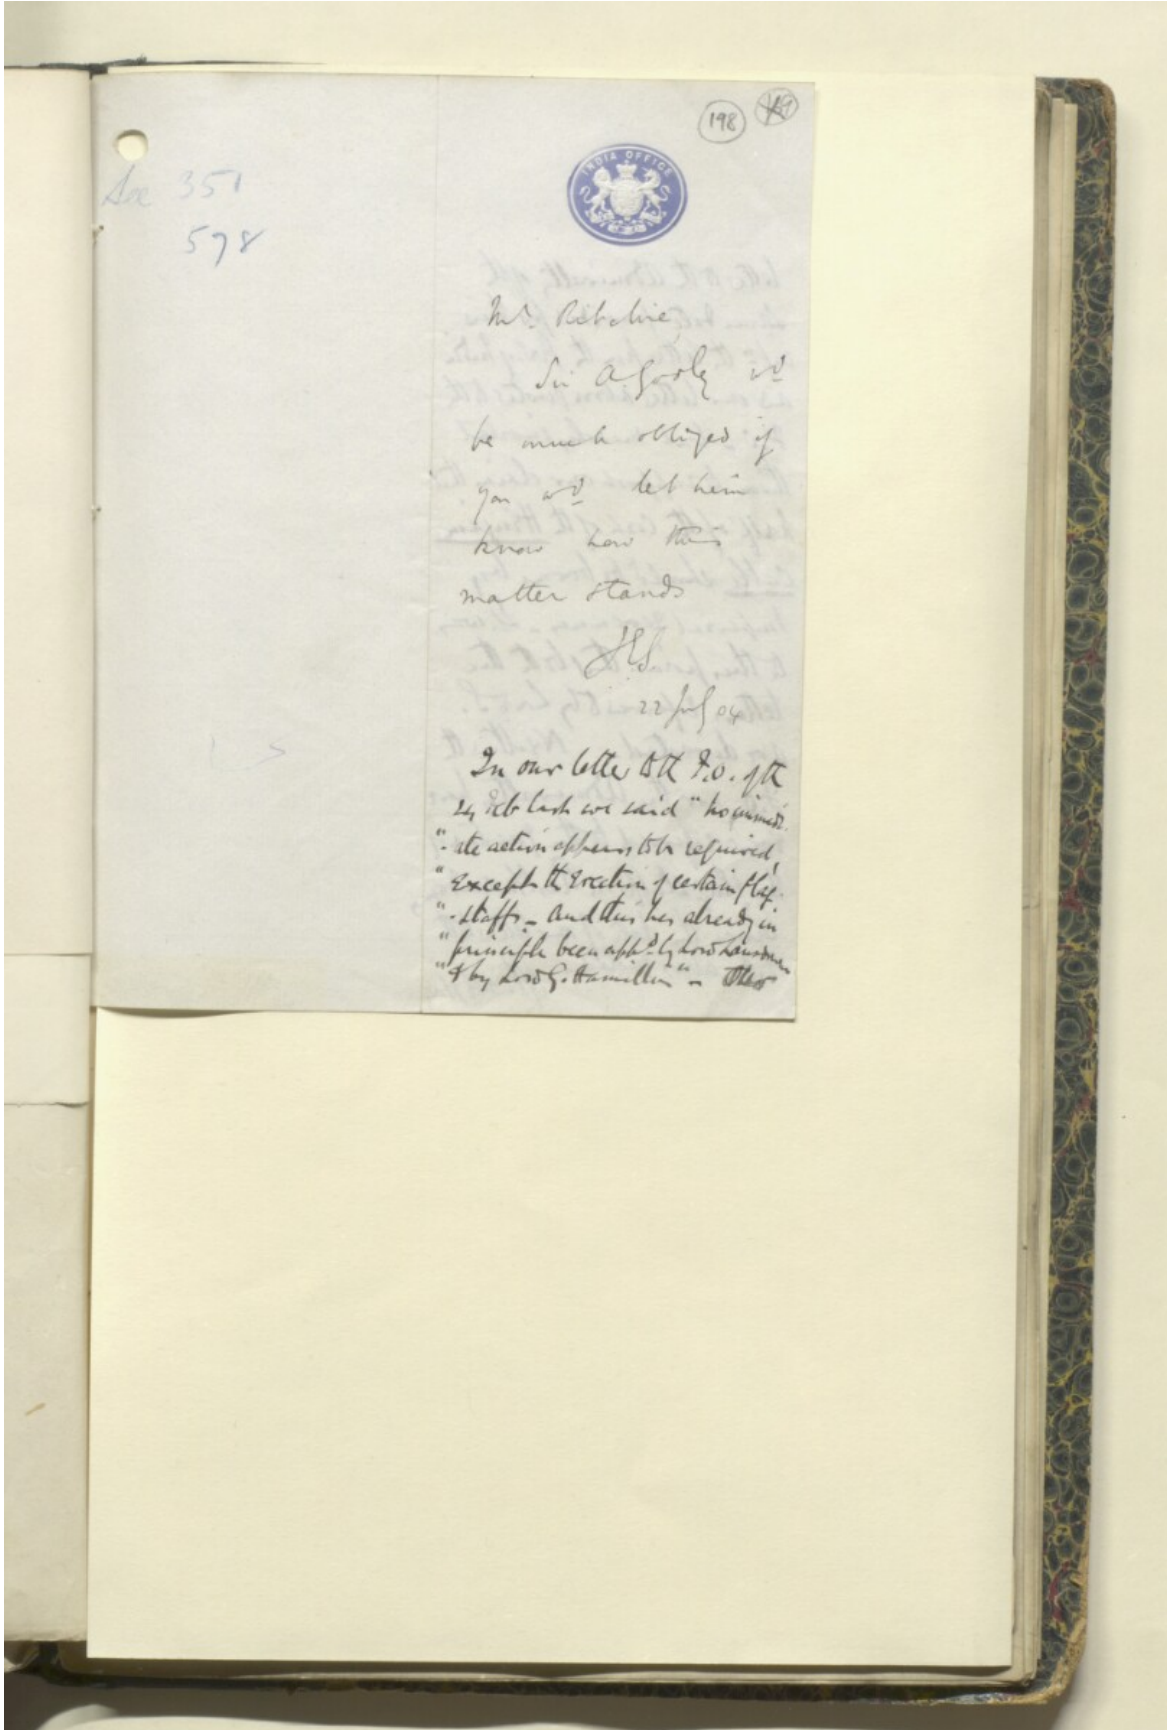 198
See 351
578
INDIA OFFICE
Mr. Ritchie
Sir A Godley wd
be much obliged if
you wd let him
know how this
matter stands
22 July 04
In our letter to the F.O. of the
24 Feb last we said "no immedi-
"-ate action appears to be required,
"except the erection of certain flag-
"-staffs - and this has already in
"principle been appd. by Lord Lansdowne
"& by Lord G. Hamilton" -